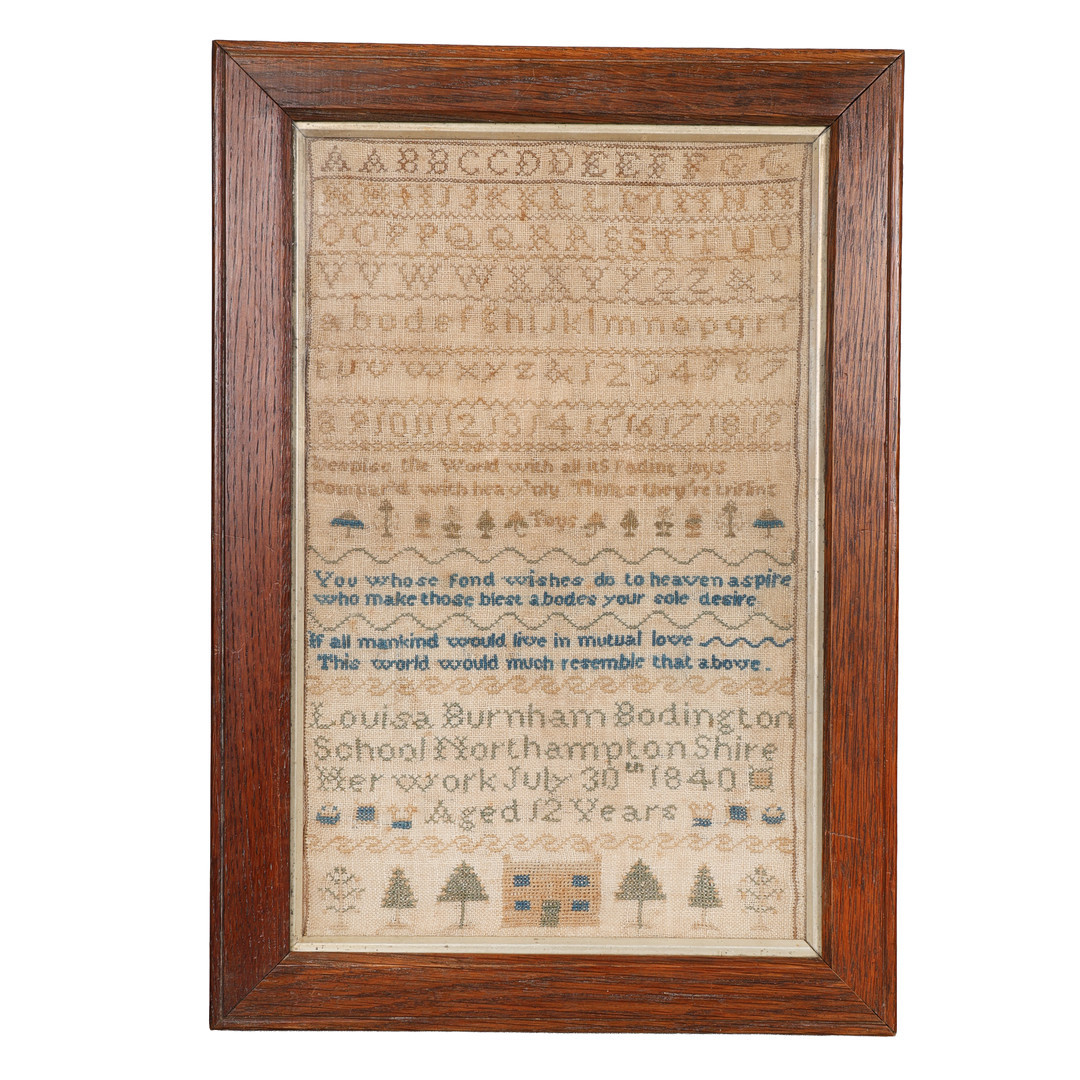 A A B B C C D D E E F F G G
H H I I J J K K L L M M N N
O O P P Q Q R R S S T T U U
V V W W X X Y Y Z Z &
a b c d e f g h i j k l m n o p q r s
t u v w x y z & 1 2 3 4 5 6 7
8 9 10 11 12 13 14 15 16 17 18 19
Despise the World with all its Fading Joys
Compar'd with heav'nly Things they're trifling
Toys
You whose fond wishes do to heaven aspire
who make those blest abodes your sole desire
If all mankind would live in mutual love
This world would much resemble that above.
Louisa Burnham Bodington
School Northampton Shire
Her work July 30th 1840
Aged 12 Years